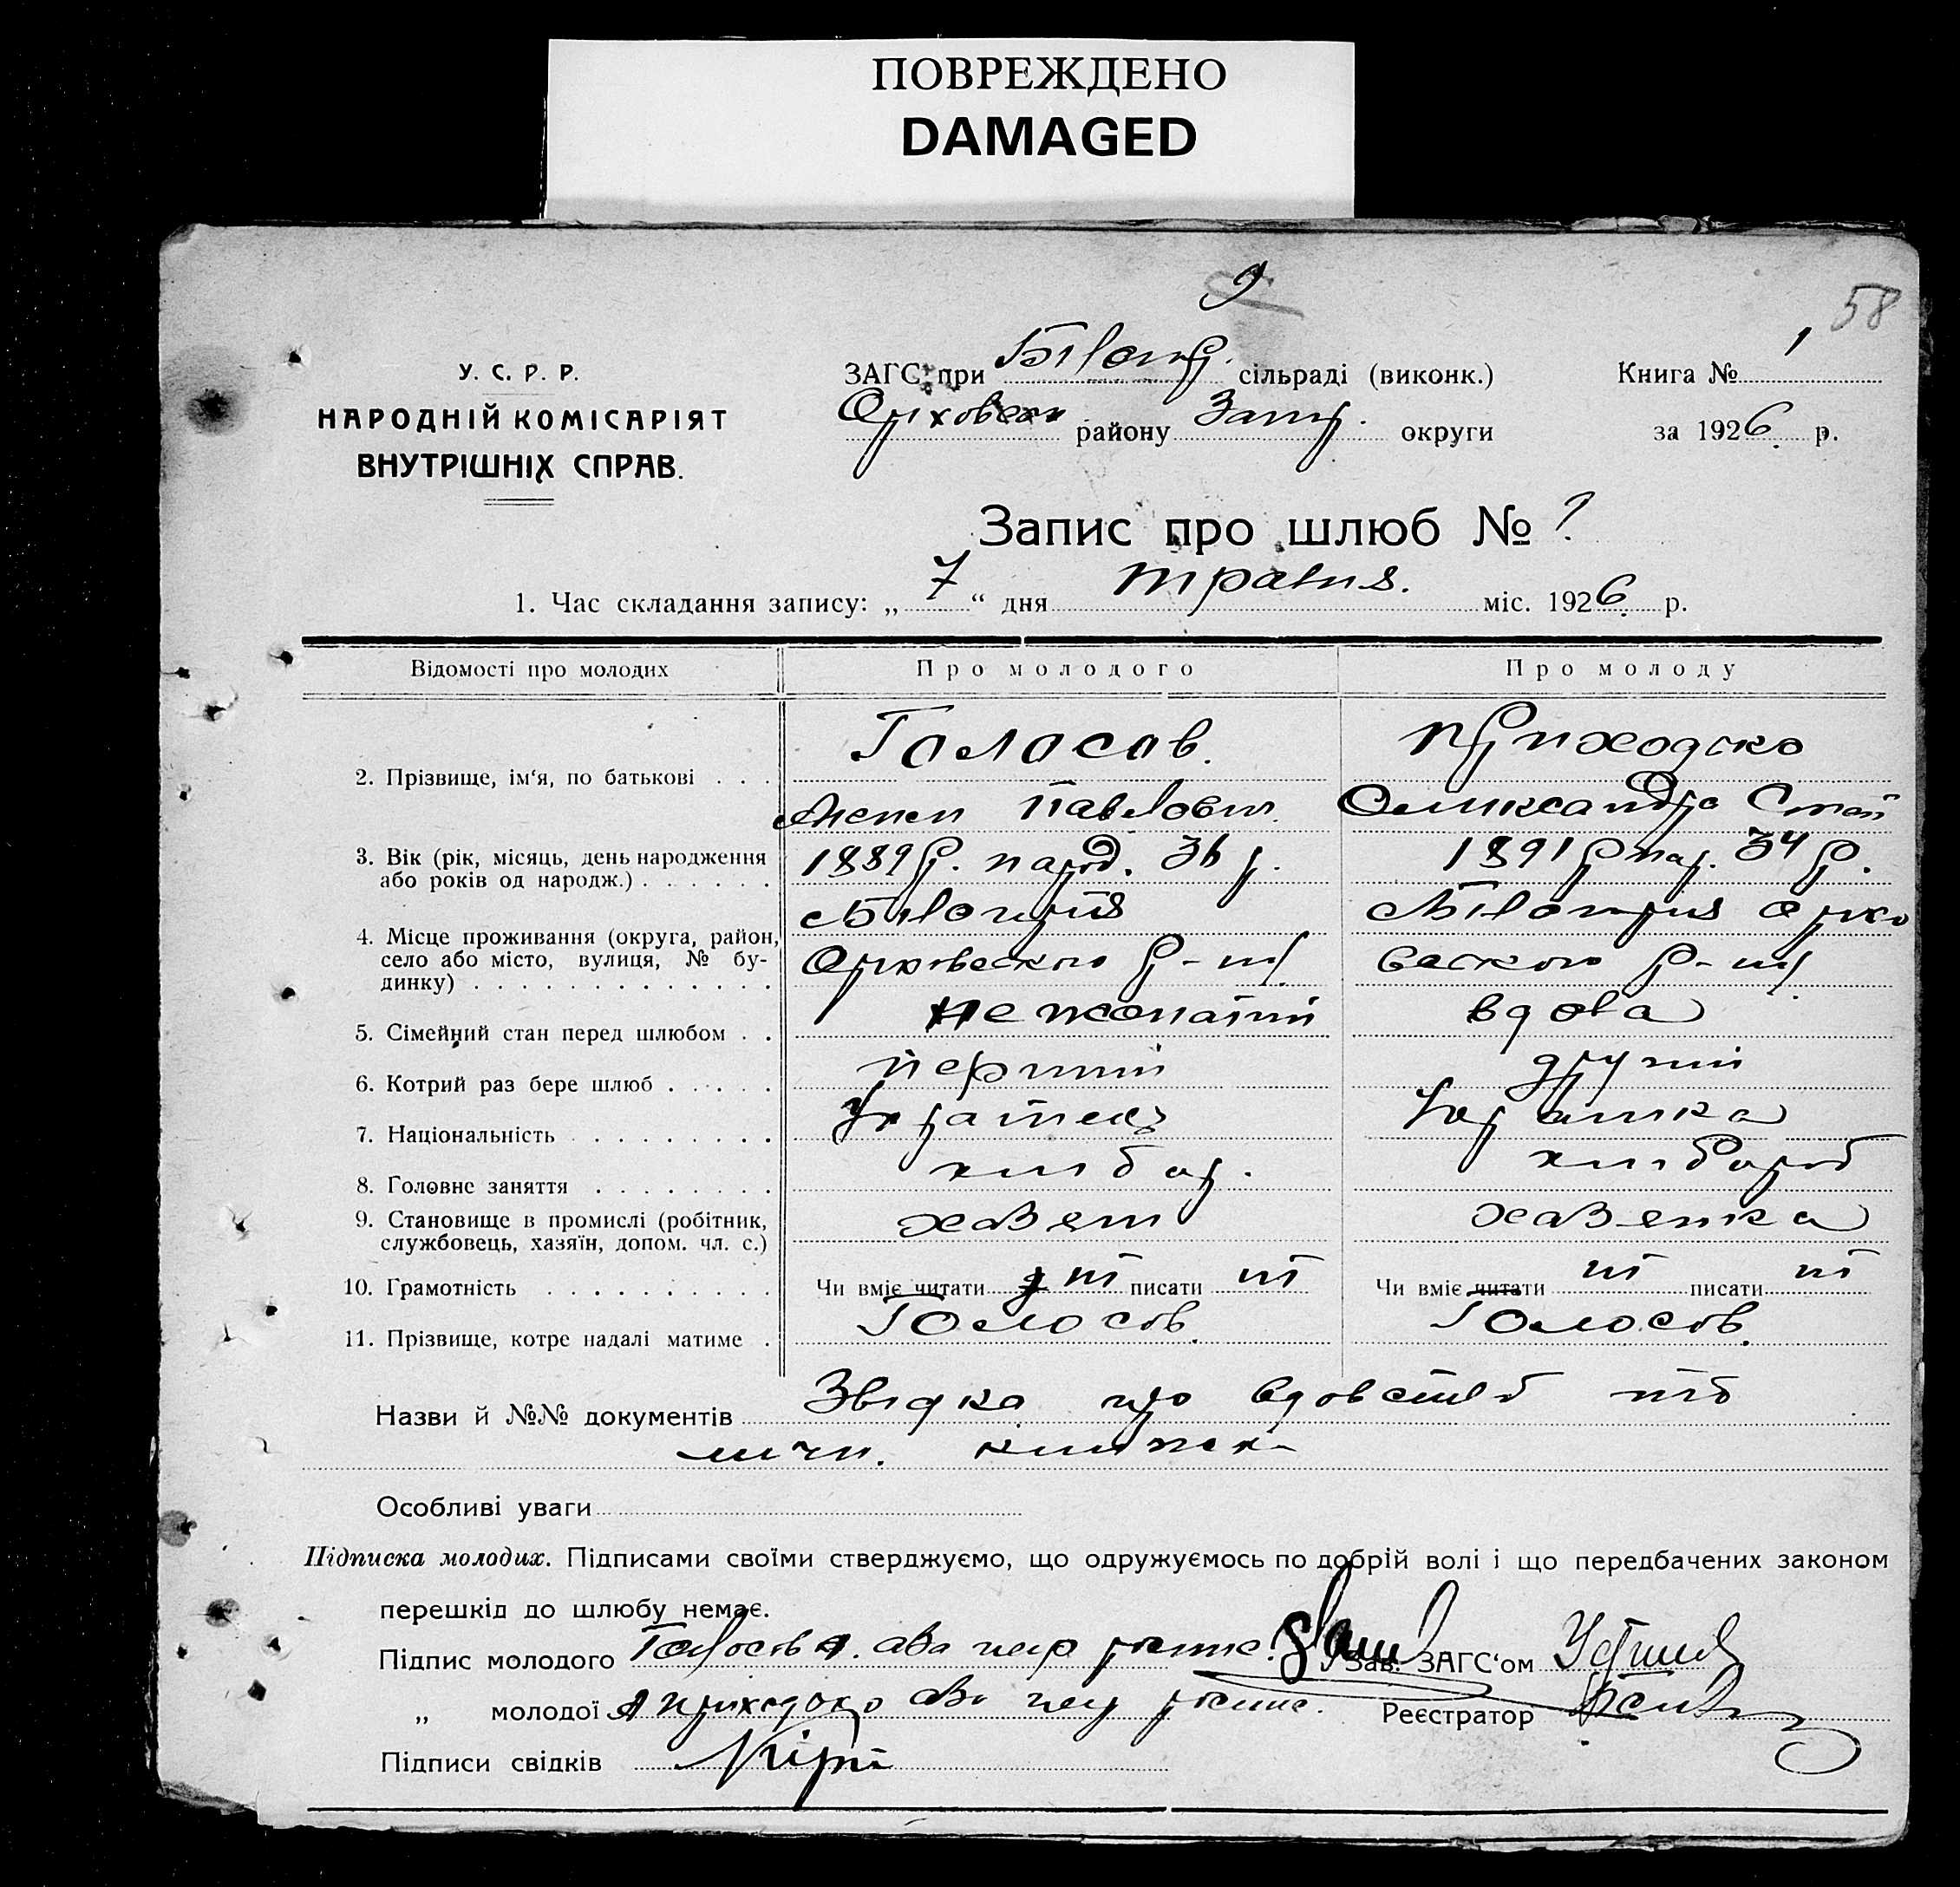 ПОВРЕЖДЕНО
DAMAGED
9
58
У. С. Р. Р.
НАРОДНІЙ КОМІСАРІЯТ
ВНУТРІШНІХ СПРАВ.
ЗАГС при Білог. сільраді (виконк.)
Книга № 1
району Запор. округи
за 1926 р.
Запис про шлюб №
1. Час складання запису: „ 7 “ дня травня. міс. 1926 р.
Відомості про молодих
Про молодого
Про молоду
2. Прізвище, ім‘я, по батькові . . .
Голосов.
Приходько
Павлович
Олександра
3. Вік (рік, місяць, день народження
або років од народж.) . . . . . .
1889 р. народ. 36 р.
1891 р нар. 34 р.
4. Місце проживання (округа, район,
село або місто, вулиця, № бу-
динку) . . . . . . . . . . . . .
Білогирія
Оріховского р-ну
Білогирія Оріхо
вского р-ну
5. Сімейний стан перед шлюбом . .
не жонатий
вдова
6. Котрий раз бере шлюб . . . . .
перший
другий
7. Національність . . . . . . . . .
Украінець
Украінка
8. Головне заняття . . . . . . . .
хлібор.
хлібороб
9. Становище в промислі (робітник,
службовець, хазяїн, допом. чл. с.)
хазяін
хазяйка
10. Грамотність . . . . . . . . . .
Чи вміє читати ні писати ні
Чи вміє читати ні писати ні
11. Прізвище, котре надалі матиме .
Голосов.
Голосов.
Назви й №№ документів Звідка про вдовство
книжка
Особливі уваги
Підписка молодих. Підписами своїми стверджуємо, що одружуємось по добрій волі і що передбачених законом
перешкід до шлюбу немає.
Підпис молодого Голосов
Зав. ЗАГС‘ом
„ молодої Приходько
Реєстратор
Підписи свідків